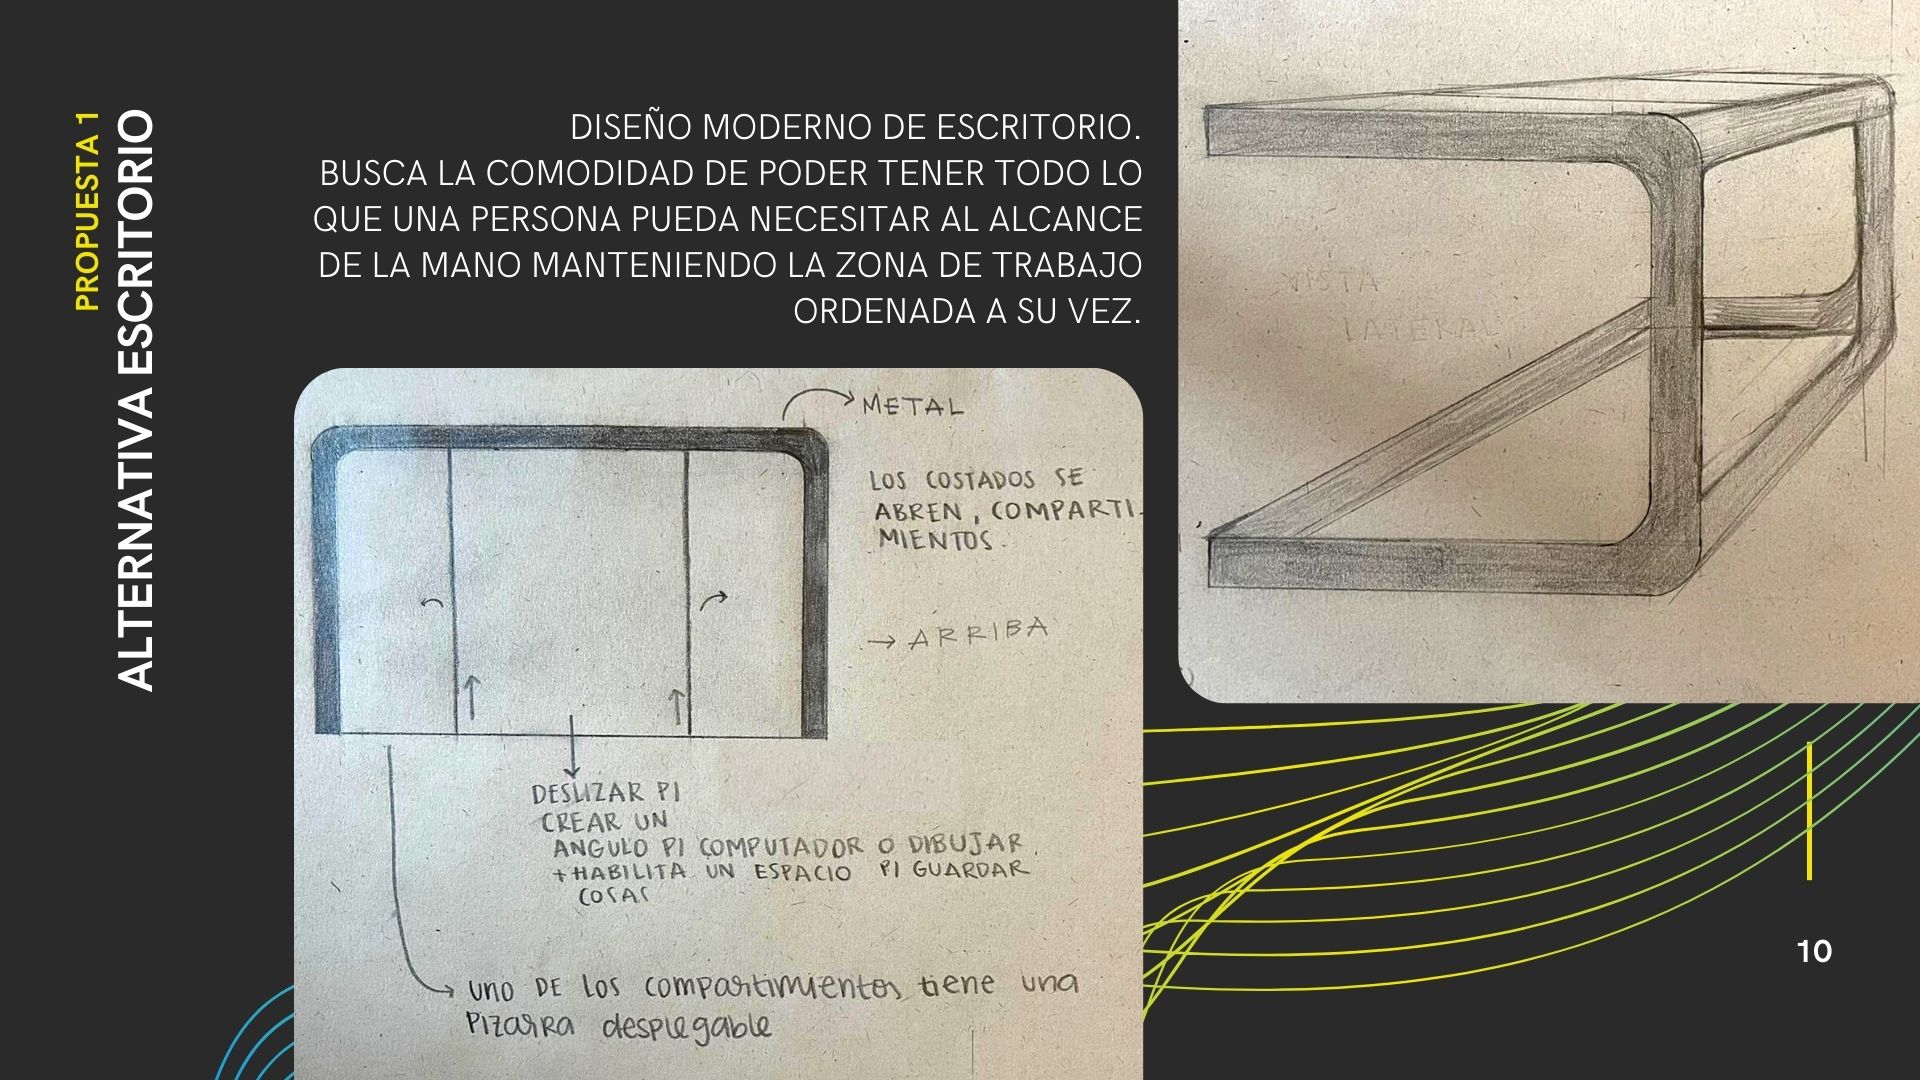 PROPUESTA 1
ALTERNATIVA ESCRITORIO
DISEÑO MODERNO DE ESCRITORIO.
BUSCA LA COMODIDAD DE PODER TENER TODO LO
QUE UNA PERSONA PUEDA NECESITAR AL ALCANCE
DE LA MANO MANTENIENDO LA ZONA DE TRABAJO
ORDENADA A SU VEZ.
VISTA
LATERAL
METAL
LOS COSTADOS SE
ABREN, COMPARTI-
MIENTOS.
→ ARRIBA
DESLIZAR P/
CREAR UN
ANGULO P/ COMPUTADOR O DIBUJAR.
+ HABILITA UN ESPACIO P/ GUARDAR
COSAS
UNO DE LOS compartimientos tiene una
Pizarra desplegable
10